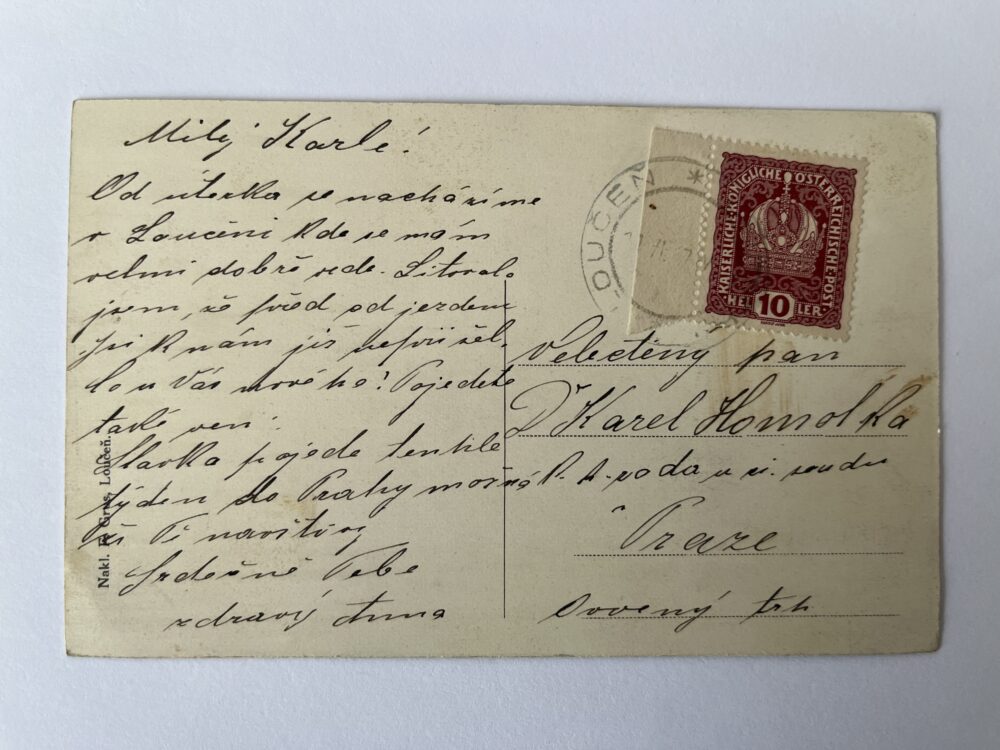 Milý Karle!
Od úterka se nacházíme
v Loučeni kde se mám
velmi dobře vede. Litovala
jsem, že před od jezdem
jsi k nám již nepřišel.
Co u Vás nového? Pojedete
také ven.
Slavka pojede tenhle
týden do Prahy možná
že Tě navštíví
Srdečně Tebe
zdravý Anna
Nakl. Fr. Grus, Loučeň.
LOUČEŇ *
KAISERLICHE KÖNIGLICHE ÖSTERREICHISCHE POST
HEL 10 LER
Velectěný pan
Dr Karel Homolka
rada u zem. soudu
v Praze
Ovocný trh